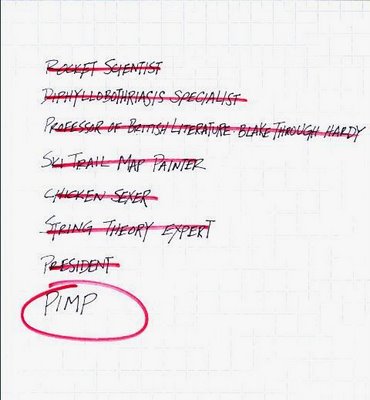 ROCKET SCIENTIST
DIPHYLLOBOTHRIASIS SPECIALIST
PROFESSOR OF BRITISH LITERATURE BLAKE THROUGH HARDY
SKI TRAIL MAP PAINTER
CHICKEN SEXER
STRING THEORY EXPERT
PRESIDENT
PIMP